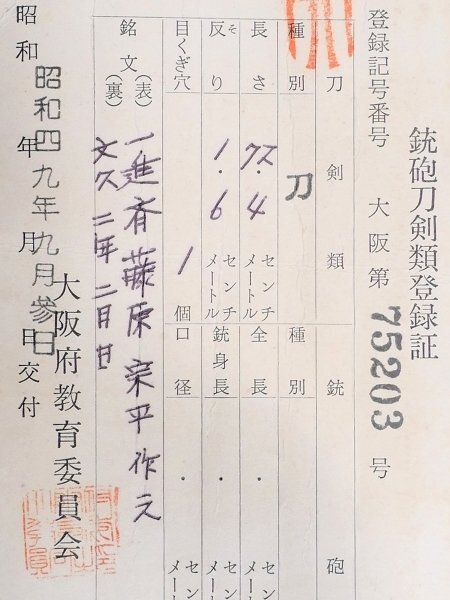 銃砲刀剣類登録証
登録記号番号 大阪第 75203 号
刀剣類 銃砲
種別 刀 種別
長さ 72.4 センチメートル 全長 . センチメートル
反り そ 1.6 センチメートル 銃身長 . センチメートル
目くぎ穴 1 個 口径 . センチメート
銘文 (表) 一進斉藤原宗平作之
(裏) 文久二年二月日
昭和 年 月 日交付
昭和四九年九月参日
大阪府教育委員会